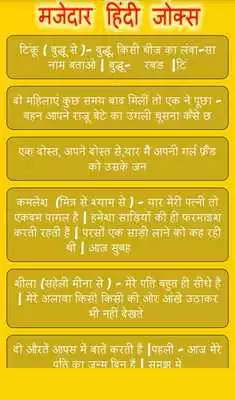 मजेदार हिंदी जोक्स
टिंकू ( बुद्धू से )- बुद्धू, किसी चीज का लंबा-सा
नाम बताओ | बुद्धू- रबड |टिं
दो महिलाएं कुछ समय बाद मिलीं तो एक ने पूछा -
बहन आपने राजू बेटे का उंगली चूसना कैसे छ
एक दोस्त, अपने दोस्त से,यार मै अपनी गर्ल फ्रैंड
को उसके जन
कमलेश (मित्र से श्याम से ) - यार मेरी पत्नी तो
एकदम पागल है | हमेशा साड़ियों की ही फरमाइश
करती रहती है | परसों एक साड़ी लाने को कह रही
थी | आज सुबह
शीला (सहेली मीना से ) - मेरे पति बहुत ही सीधे है
| मेरे अलावा किसी किसी की ओर आंखे उठाकर
भी नहीं देखते
दो औरते आपस में बाते करती हैं |पहली - आज मेरे
पति का जन्म दिन है | समझ में